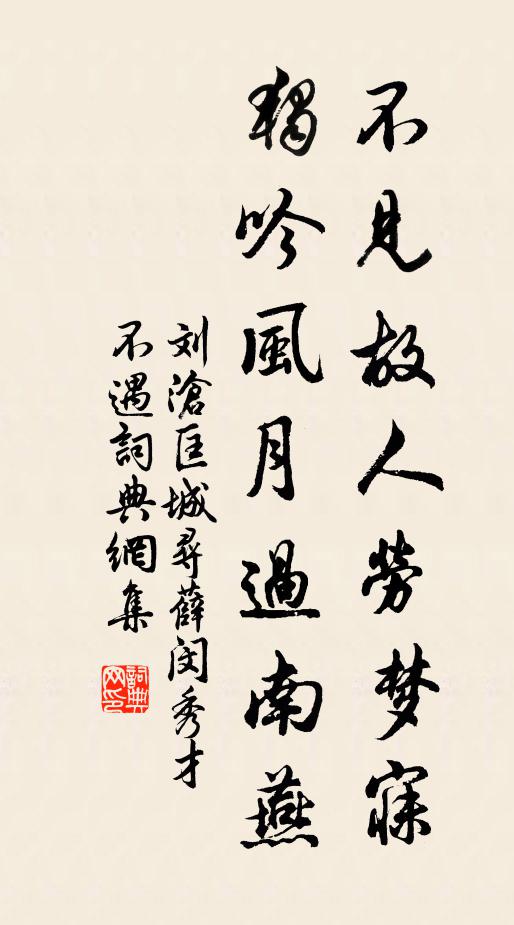 不見故人劳梦寐
獨吟風月過南燕
刘滄匡城尋薛闵秀才
不遇詞典網集
詞典网印